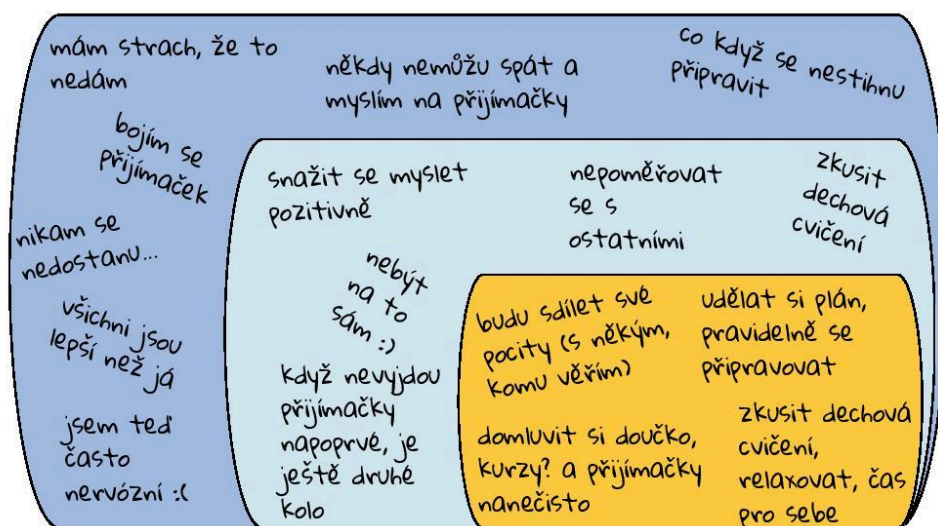 mám strach, že to
nedám
někdy nemůžu spát a
myslím na přijímačky
co když se nestihnu
připravit
bojím se
přijímaček
nikam se
nedostanu...
všichni jsou
lepší než já
jsem teď
často
nervózní :(
snažit se myslet
pozitivně
nepoměřovat
se s
ostatními
zkusit
dechová
cvičení
nebýt
na to
sám :)
když nevyjdou
přijímačky
napoprvé, je
ještě druhé
kolo
budu sdílet své
pocity (s někým,
komu věřím)
udělat si plán,
pravidelně se
připravovat
domluvit si doučko,
kurzy? a přijímačky
nanečisto
zkusit dechová
cvičení,
relaxovat, čas
pro sebe